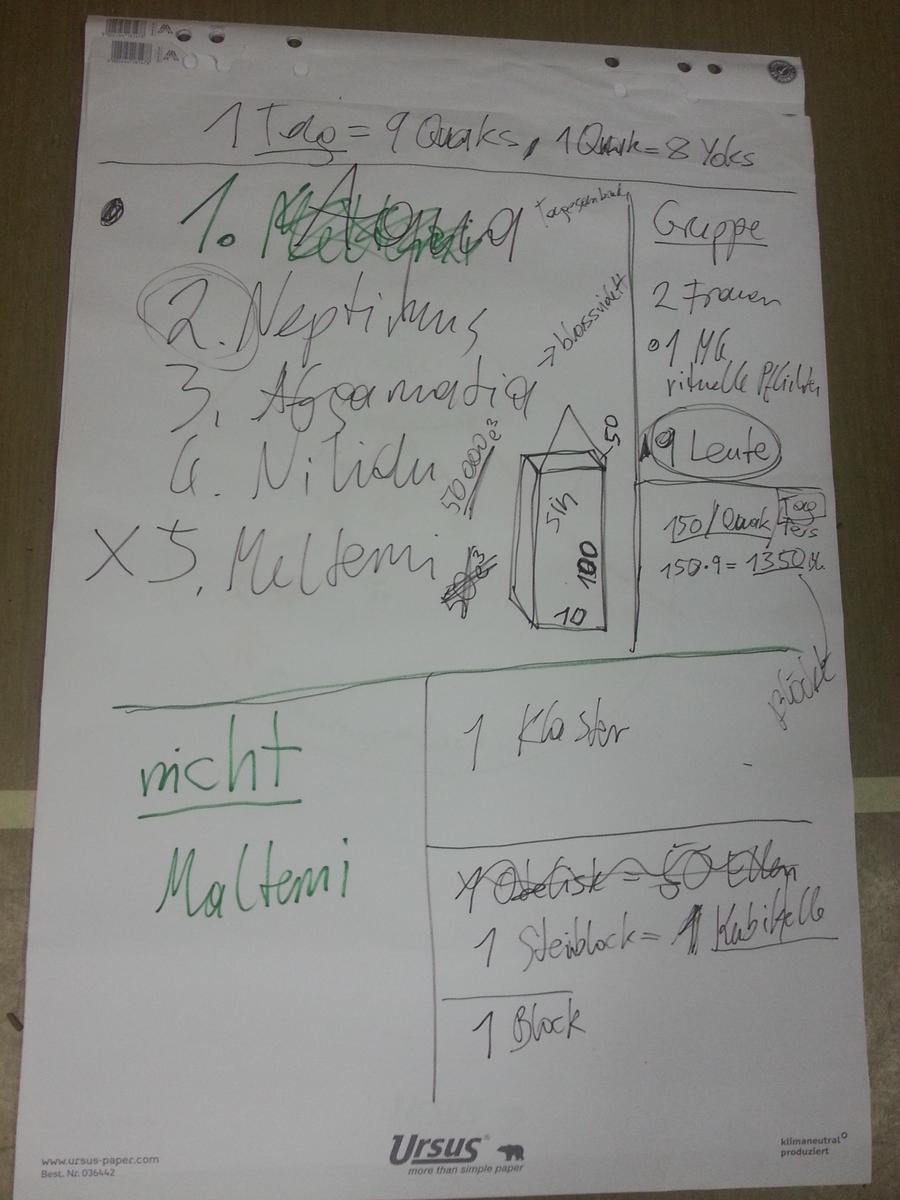 1 Tag = 9 Quaks, 1 Quak = 8 Yoks
1. Aquia
2. Neptimus
3. Afgamatia
→ blassviolett
4. Nilidu
50000 e³
X 5. Meltemi
5in
50
100
10
Gruppe
2 Frauen
1 MG
rituelle Pflichten
9 Leute
150/Quak/Tag
150·9 = 1350
Blöcke
nicht
Maltemi
1 Klaster
1 Obelisk = 50 Ellen
1 Steinblock = 1 Kubikelle
1 Block
www.ursus-paper.com
Best. Nr. 036442
Ursus
more than simple paper
klimaneutral
produziert